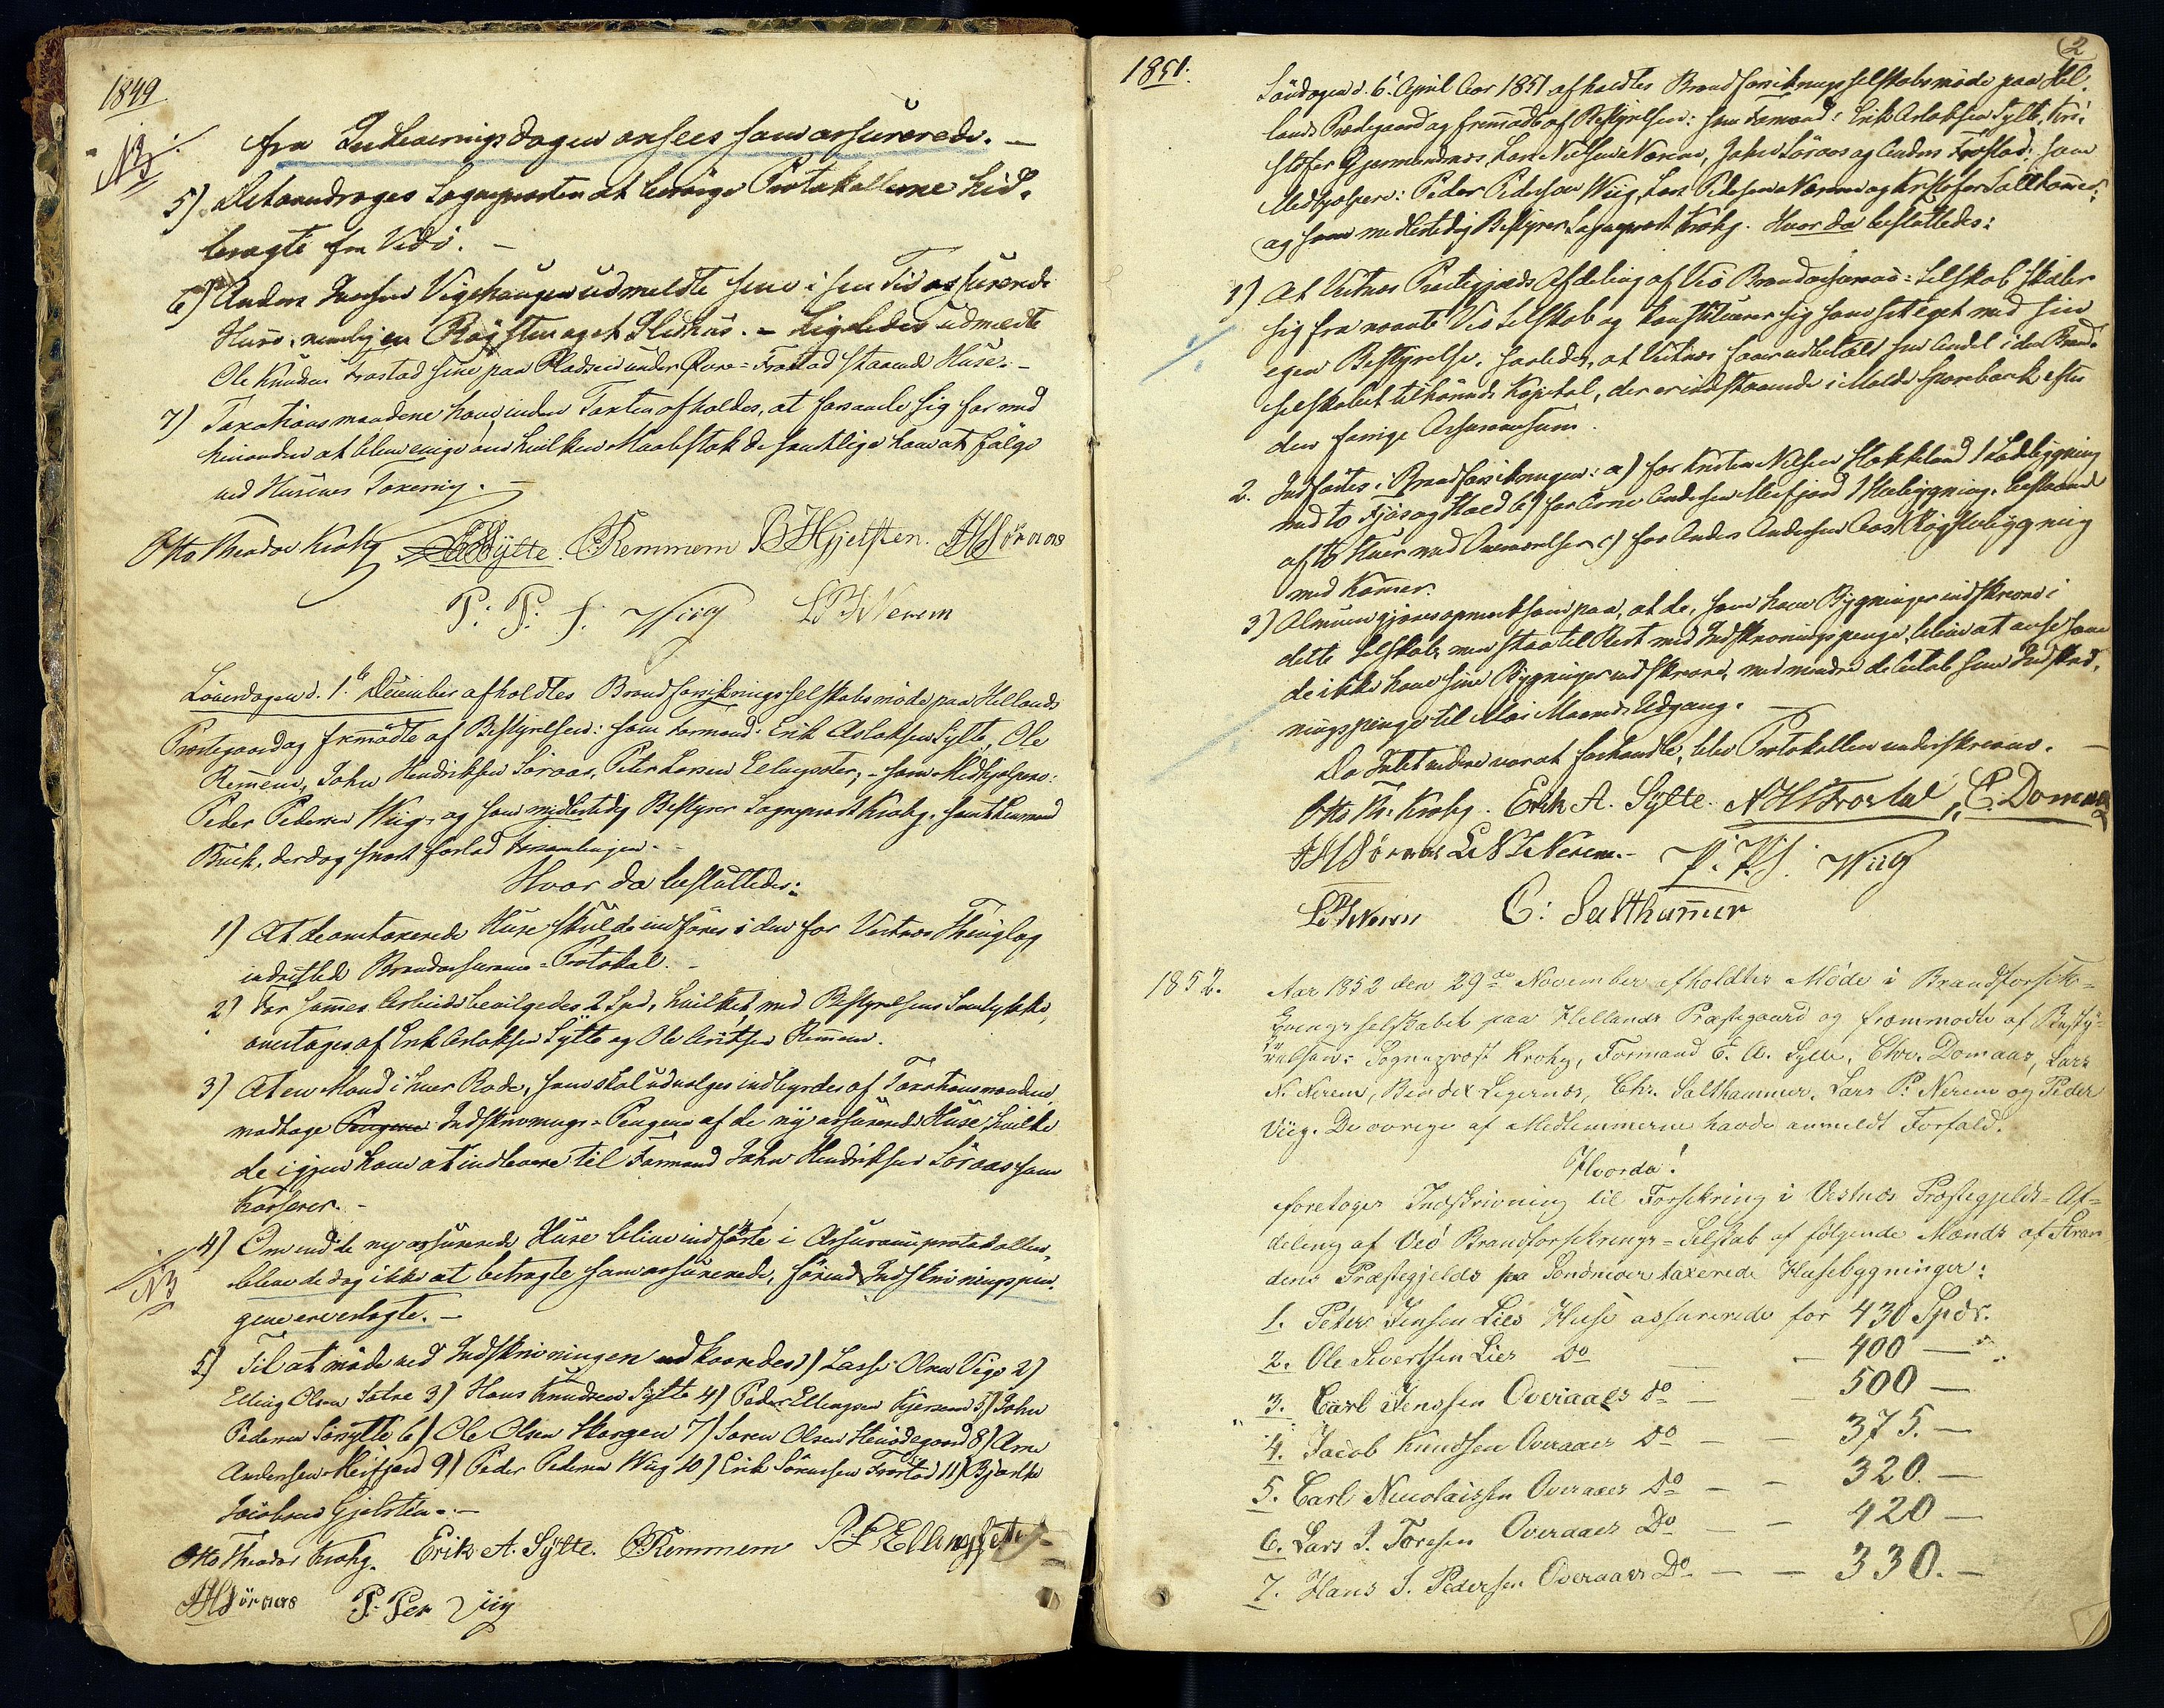 1849
NB
fra Indleverings dagen ansees som assurerede. –
5) Det anmodroges Sognepresten at besørge Protokollerne hid-
bragte fra Vedø. –
6) Anders Jensen Vigehaugen udmeldte sine i sin Tid assurerede
Huse, nemlig en Røgstue og et Ildhus. – Ligeledes udmeldte
Ole Knudsen Frostad sine paa Pladsen under Øvre-Frostad staaende Huse. –
7) Taxationsmændene have, inden Taxten afholdes, at samle sig for med
hinanden at blive enige om hvilken Maalestok de samtlige have at følge
ved Husenes Taxering. –
Otto Theodor Krohg EASylte. ORemmem B Hjelsten. JHSøraas
P: P: s: Wiig LPNerem
Løverdagen d. 1.ste December afholdtes Brandforsikringsselskabsmøde paa Hellands
Præstegaard og fremmødte af Bestyrelsen: som Formænd: Erik Aslaksen Sylte, Ole
Remmem, John Hendriksen Søraas, Peter Larsen Ellingsæter; – som Medhjelpere:
Peder Pedersen Wiig, og som midlertidig Bestyrer Sogneprest Krohg, samt Lensmand
Buch, der dog snart forlod Forsamlingen. –
Hvor da besluttedes:
1) At de omtaxerede Huse skulde indføres i den for Vestnæs Thinglag
indrettede Brandassurance-Protokol. –
2) For sammes Arbeide bevilgedes 2 Spd, hvilket, med Bestyrelsens Samtykke,
overtages af Erik Aslaksen Sylte og Ole Eriksen Remmem.
3) At en Mand i hver Rode, som skal udvælges indbyrdes af Taxationsmændene,
modtage Pengene Indskrivnings-Pengene af de ny assurerede Huse, hvilke
de igjen have at indlevere til Formand John Hendriksen Søraas som
Kasserer. –
4) Om end de ny assurerede Huse blive indførte i Assuranceprotokollen,
NB
blive de dog ikke at betragte som assurerede, førend Indskrivningspen-
gene ere erlagte. –
5) Til at møde ved Indskrivningen udkaaredes 1) Lasse Olsen Vige 2)
Elling Olsen Sætre 3) Hans Knudsen Sylte 4) Peder Ellingsen Kjersem 5) John
Pedersen Sørsylte 6) Ole Olsen Skorgen 7) Søren Olsen 8) Arne
Andersen Misfjord 9) Peder Pedersen Wiig 10) Erik Sørensen Frostad 11)
Jacobsen Gjelsten. –
Otto Theodor Krohg. Erik A. Sylte. ORemmem P L Ellingsæter
JHSøraas P. Per Viig
2
1851.
Søndagen d. 6. April Aar 1851 afholdtes Brandforsikringsselskabsmøde paa Hel-
lands Præstegaard og fremmødte af Bestyrelsen: som Formænd: Erik Aslaksen Sylte, Kri-
stofer Gjermundnæs, Lars Nielsen Nerem, John Søraas og Anders Frostad; som
Medhjelpere: Peder Pedersen Wiig, Lars Pedersen Nerem og Kristofer Salthammer;
og som midlertidig Bestyrer Sogneprest Krohg. Hvor da besluttedes:
1) At Vestnæs Præstegjelds Afdeling af Veø Brandassurance-Selskab skiller
sig fra nævnte Veø Selskab og konstituerer sig som sit eget med sin
egen Bestyrelse, saaledes, at Vestnæs faar udbetalt sin Andel i den Brand-
selskabet tilhørende Kapital, der er indestaaende i Molde Sparebank efter
den forrige Assuransesum.
2. Indførtes i Brandforsikringen: a) for Kristen Nilsen Flatteland 1 Ladebygning
med to Fjøs og Stald b) for Arne Andersen Misfjord 1 Stuebygning, bestaaende
af to Stuer med Overværelser c) for Anders Andersen Aas 1 Røgstuebygning
med Kammer.
3) Almuen gjøres opmærksom paa, at de, som have Bygninger indskrevne i
dette Selskab, men staa til Rest med Indskrivningspenge, blive at anse som
de ikke have sine Bygninger indskrevne, med mindre de betale sine Indskriv-
ningspenge til Mai Maaneds Udgang. –
Da Intet videre var at forhandle, blev Protokollen underskreven. –
Otto Th. Krohg. Erik A. Sylte. AHFrostad, C. Domaas
JHSøraas LNNerem. – P. P. S. Wiig
LPNerem C: Salthammer
1852.
Aar 1852 den 29de November afholdtes Møde i Brandforsik-
ringsselskabet paa Hellands Præstegaard og fremmødte af Besty-
relsen: Sogneprest Krohg, Formænd E. A. Sylte, Chr. Domaas, Lars
N. Nerem, Bendix Legernæs, Chr. Salthammer, Lars P. Nerem og Peder
Viig. De øvrige af Medlemmerne havde anmeldt Forfald.
Hvorda!
foretoges Indskrivning til Forsikring i Vestnæs Præstegjelds-Af-
deling af Veø Brandforsikrings-Selskab af følgende Mænds af Stran-
dens Præstegjelds paa Søndmøer taxerede Husebygninger:
1. Peter Jensen Lies Huse assurerede for 430 Spdr.
2. Ole Sivertsen Lies Do – 400 – " –
3. Carl Jenssen Overaaes Do – – 500 –
4. Jacob Knudsen Overaaes Do – – 375. –
5. Carl Nicolaissen Overaaes Do – – 320. –
6. Lars J. Toresen Overaaes Do – – 420 –
7. Hans S. Pedersen Overaaes Do – – 330. –